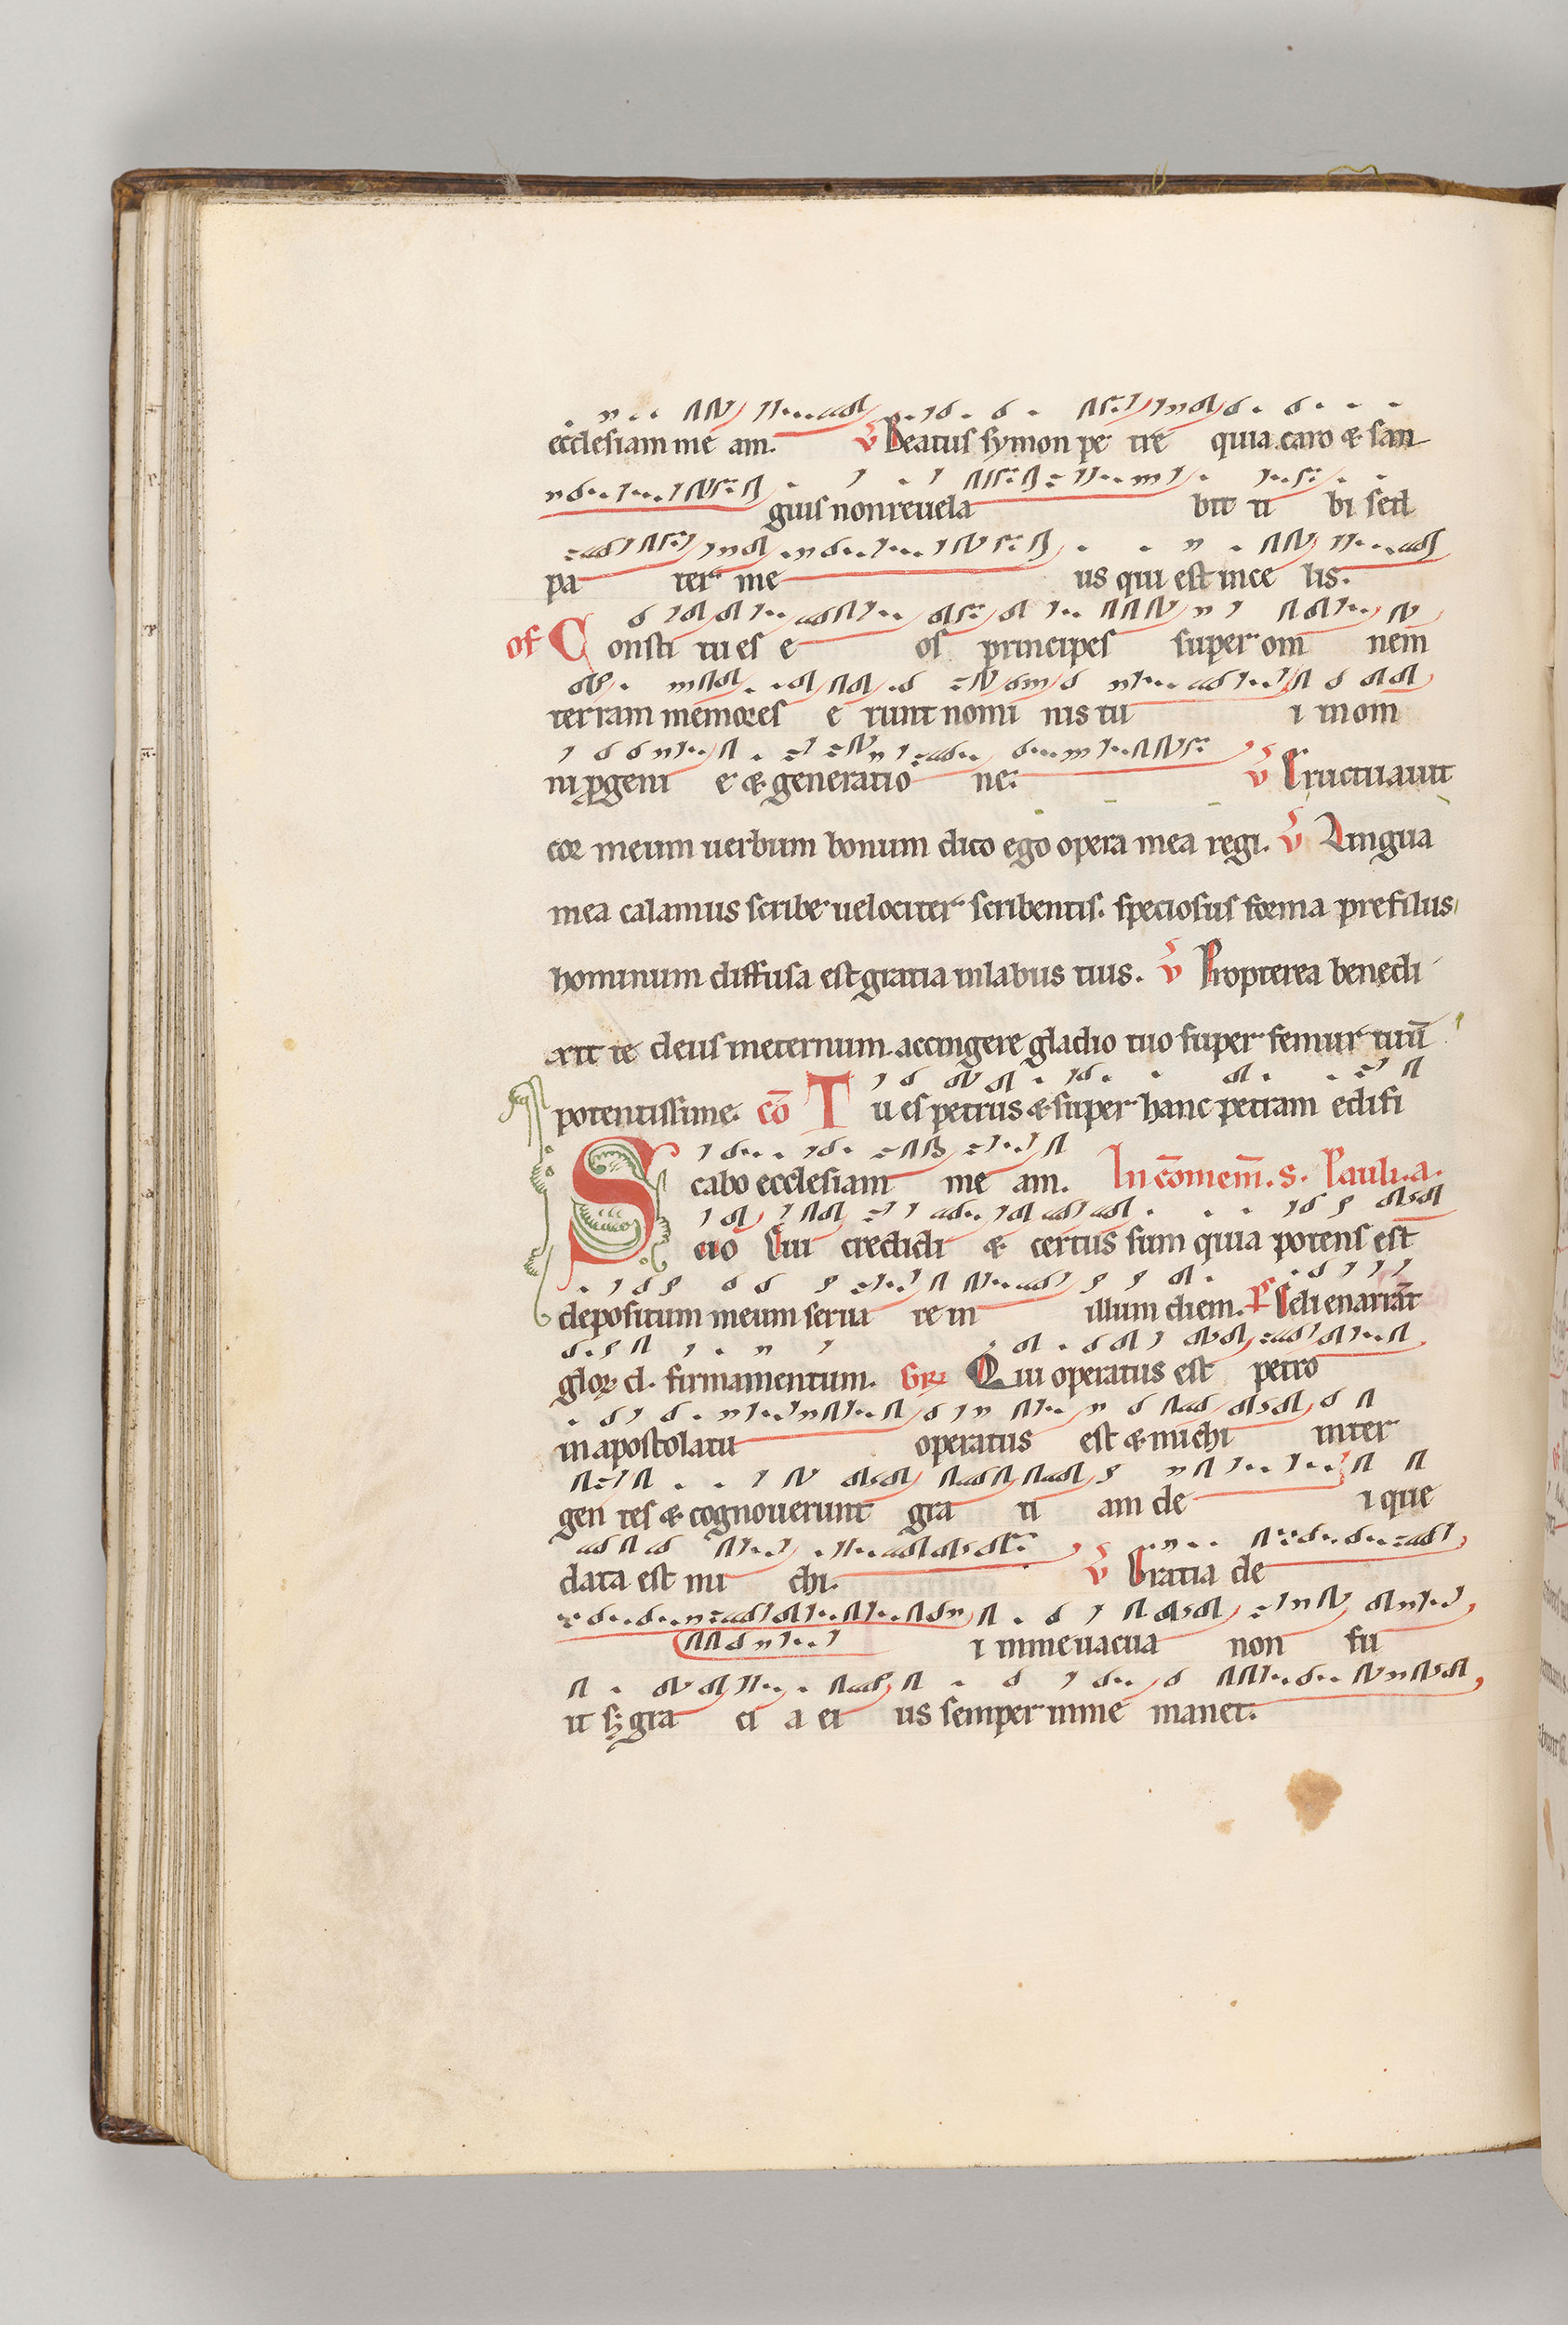 ecclesiam me am. v̄ Beatus symon pe tre quia caro & san
guis non reuela bit ti bi sed
pa ter me us qui est in ce lis.
of Consti tu es e os principes super om nem
terram memores e runt nomi nis tu i in om
ni ꝓgeni e & generatio ne. v̄ Eructuauit
cor meum uerbum bonum dico ego opera mea regi. v̄ Lingua
mea calamus scribe uelociter scribentis. speciosus forma pre filiis
hominum diffusa est gratia in labiis tuis. v̄ Propterea benedi
xit te deus in eternum. accingere gladio tuo super femur tuū
potentissime. cō Tu es petrus & super hanc petram edifi
cabo ecclesiam me am. In cōmem̄. s. Pauli. a.
Scio cui credidi & certus sum quia potens est
depositum meum serua re in illum diem. Ps Celi enarrāt
gloꝝ d. firmamentum. Gꝶ Qui operatus est petro
in apostolatu operatus est & michi inter
gen tes & cognouerunt gra ti am de i que
data est mi chi. v̄ Gratia de
i in me uacua non fu
it sꝫ gra ci a ei us semper in me manet.